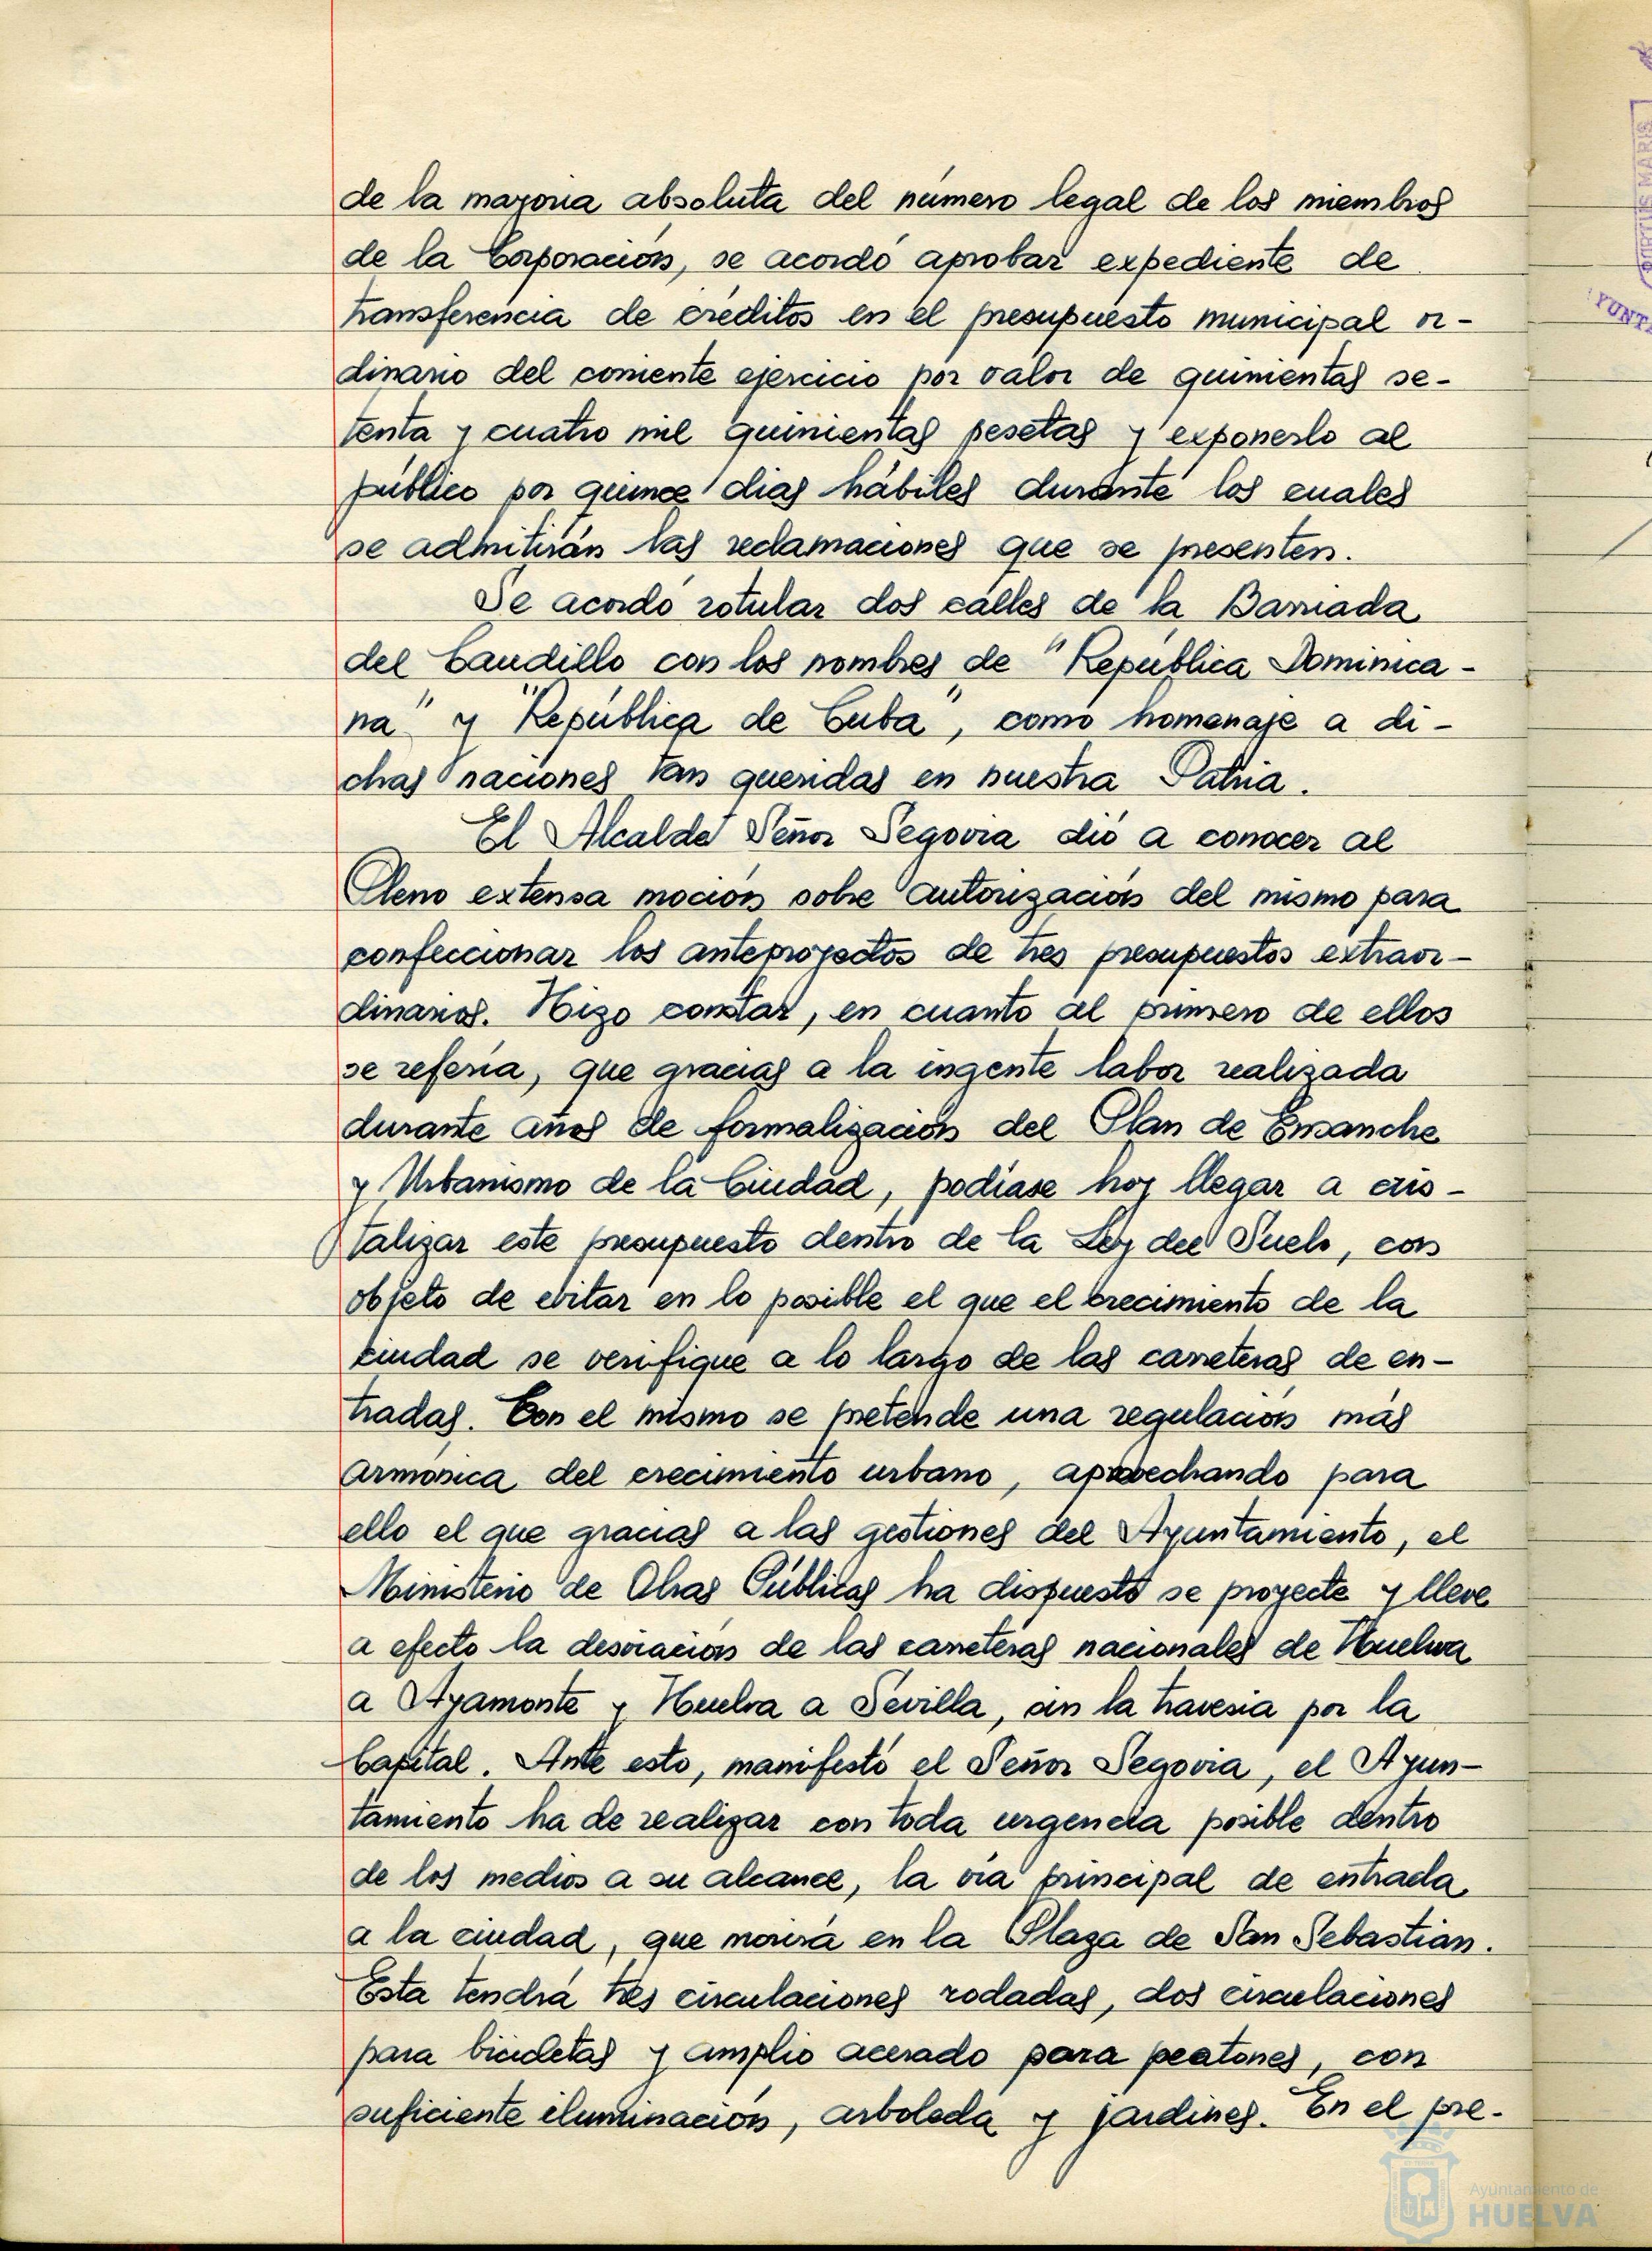 de la mayoria absoluta del número legal de los miembros
de la Corporación, se acordó aprobar expediente de
transferencia de créditos en el presupuesto municipal or-
dinario del corriente ejercicio por valor de quinientas se-
tenta y cuatro mil quinientas pesetas y exponerlo al
público por quince dias hábiles durante los cuales
se admitirán las reclamaciones que se presenten.
Se acordó rotular dos calles de la Barriada
del Caudillo con los nombres de "República Dominica-
na" y "República de Cuba", como homenaje a di-
chas naciones tan queridas en nuestra Patria.
El Alcalde Señor Segovia dió a conocer al
Pleno extensa moción sobre autorización del mismo para
confeccionar los anteproyectos de tres presupuestos extraor-
dinarios. Hizo constar, en cuanto al primero de ellos
se refería, que gracias a la ingente labor realizada
durante años de formalización del Plan de Ensanche
y Urbanismo de la Ciudad, podíase hoy llegar a cris-
talizar este presupuesto dentro de la Ley del Suelo, con
objeto de evitar en lo posible el que el crecimiento de la
ciudad se verifique a lo largo de las carreteras de en-
tradas. Con el mismo se pretende una regulación más
armónica del crecimiento urbano, aprovechando para
ello el que gracias a las gestiones del Ayuntamiento, el
Ministerio de Obras Públicas ha dispuesto se proyecte y lleve
a efecto la desviación de las carreteras nacionales de Huelva
a Ayamonte y Huelva a Sevilla, sin la travesia por la
Capital. Ante esto, manifestó el Señor Segovia, el Ayun-
tamiento ha de realizar con toda urgencia posible dentro
de los medios a su alcance, la via principal de entrada
a la ciudad, que morirá en la Plaza de San Sebastian.
Esta tendrá tres circulaciones rodadas, dos circulaciones
para bicicletas y amplio acerado para peatones, con
suficiente iluminación, arboleda y jardines. En el pre-
Ayuntamiento de
HUELVA